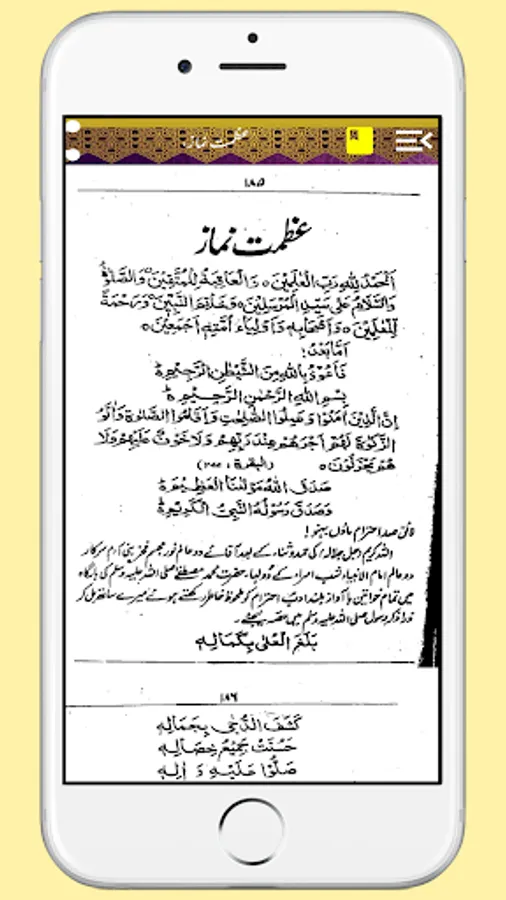 عظمت نماز
۱۸۵
عظمت نماز
اَلْحَمْدُ لِلّٰهِ رَبِّ الْعٰلَمِيْنَ ٥ وَالْعَاقِبَةُ لِلْمُتَّقِيْنَ ٥ وَالصَّلٰوةُ
وَالسَّلَامُ عَلٰى سَيِّدِ الْمُرْسَلِيْنَ ٥ وَخَاتِمِ النَّبِيّيْنَ ٥ وَرَحْمَةً
لِّلْعٰلَمِيْنَ ٥ وَاَصْحَابِهٖ وَاَوْلِيَاءِ اُمَّتِهٖ اَجْمَعِيْنَ ٥
اَمَّا بَعْدُ!
فَاَعُوْذُ بِاللّٰهِ مِنَ الشَّيْطٰنِ الرَّجِيْمِ ط
بِسْمِ اللّٰهِ الرَّحْمٰنِ الرَّحِيْمِ ط
اِنَّ الَّذِيْنَ اٰمَنُوْا وَعَمِلُوا الصّٰلِحٰتِ وَاَقَامُوا الصَّلٰوةَ وَاٰتَوُ
الزَّكٰوةَ لَهُمْ اَجْرُهُمْ عِنْدَ رَبِّهِمْ وَلَا خَوْفٌ عَلَيْهِمْ وَلَا
هُمْ يَحْزَنُوْنَ ٥ (البقرة، ۲۷۷)
صَدَقَ اللّٰهُ مَوْلٰنَا الْعَظِيْمُ ط
وَصَدَقَ رَسُوْلُهُ النَّبِيُّ الْكَرِيْمُ ط
قابل صد احترام ماؤں بہنو!
اللہ کریم جل جلالہ کی حمد و ثناء کے بعد آقائے دو عالم نور مجسم فخر بنی آدم سرکار
دو عالم امام الانبیاء شب اسراء کے دولہا۔ حضرت محمد مصطفےٰ صلی اللہ علیہ وسلم کی بارگاہ
میں تمام خواتین با آواز بلند ادب احترام کو ملحوظ خاطر رکھتے ہوئے میرے ساتھ مل کر
ذرا ذکر رسول صلی اللہ علیہ وسلم میں حصہ لیجئے۔
بَلَغَ الْعُلٰى بِكَمَالِهٖ
۱۸۶
كَشَفَ الدُّجٰى بِجَمَالِهٖ
حَسُنَتْ جَمِيْعُ خِصَالِهٖ
صَلُّوْا عَلَيْهِ وَ اٰلِهٖ